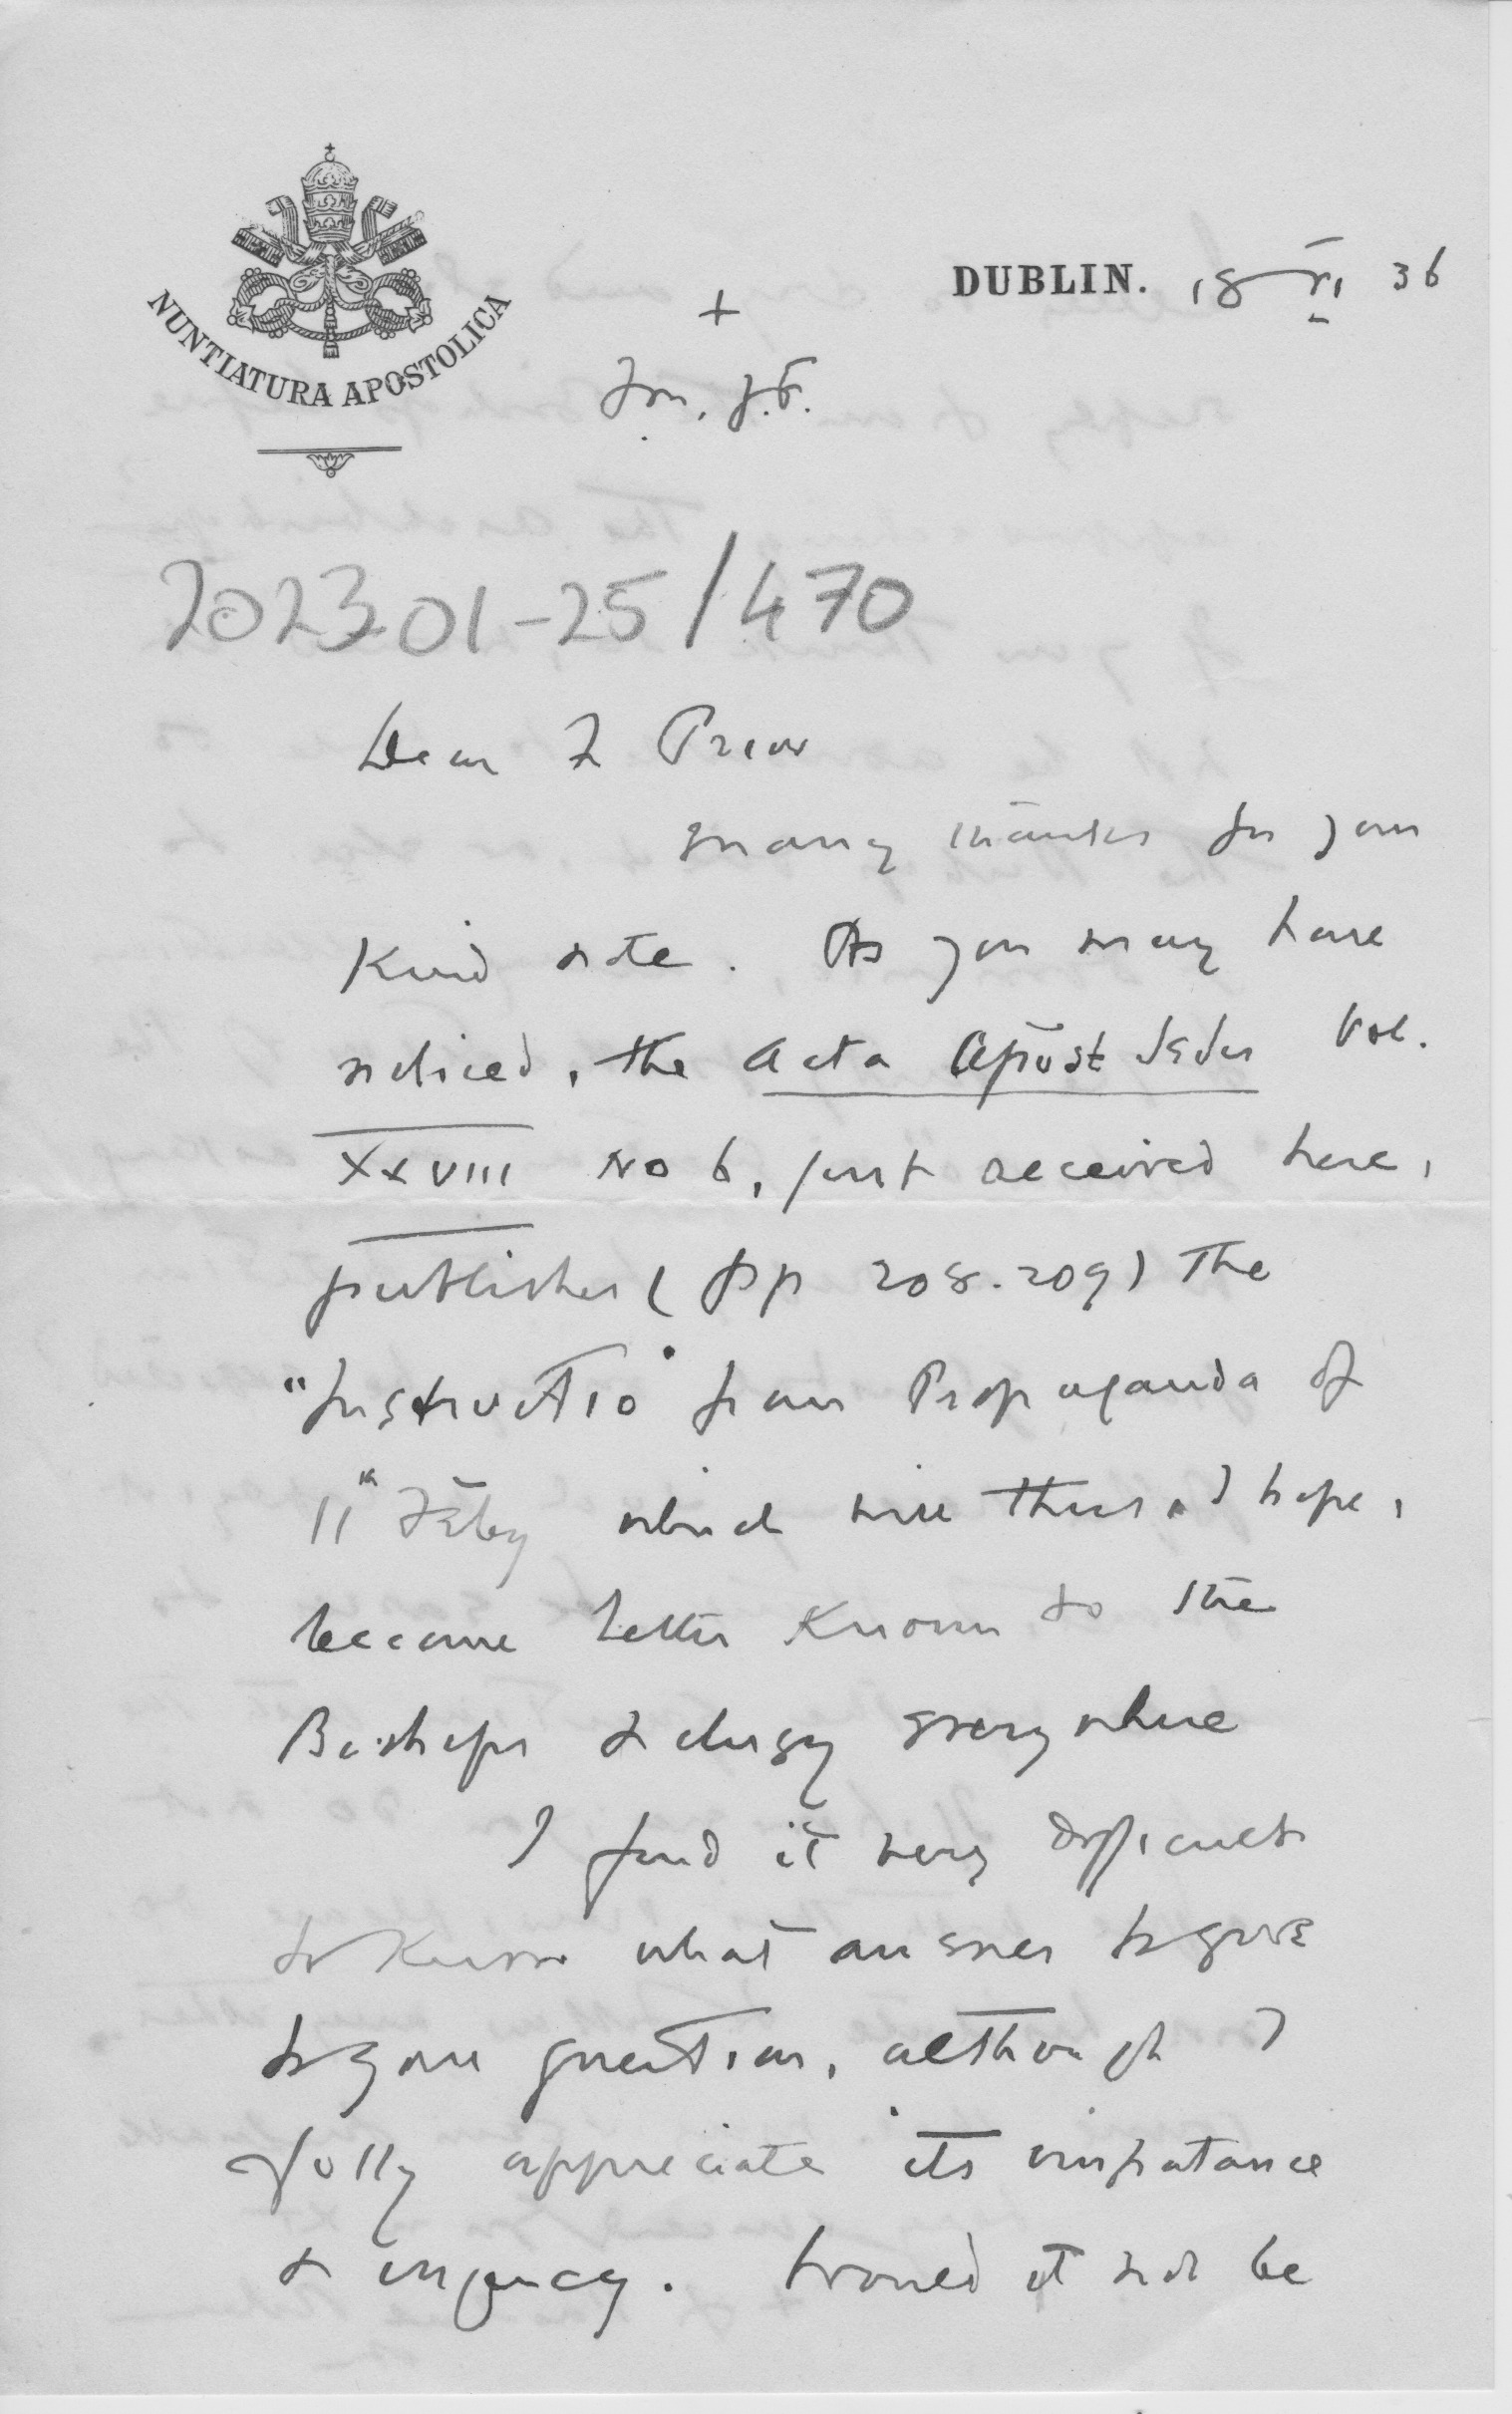 NUNTIATURA APOSTOLICA
DUBLIN. 18 VI 36
+
202301-25/470
Dear F Prior
Many thanks for your
kind note. As you may have
noticed, the Acta Apost Sedis Vol.
XXVIII No 6, just received here,
publishes (pp 208.209) the
"Instructio" from Propaganda of
11th Feby which will thus, I hope,
become better known to the
Bishops & clergy everywhere
I find it very difficult
to know what answer to give
to your question, although I
fully appreciate its importance
& urgency. Would it not be